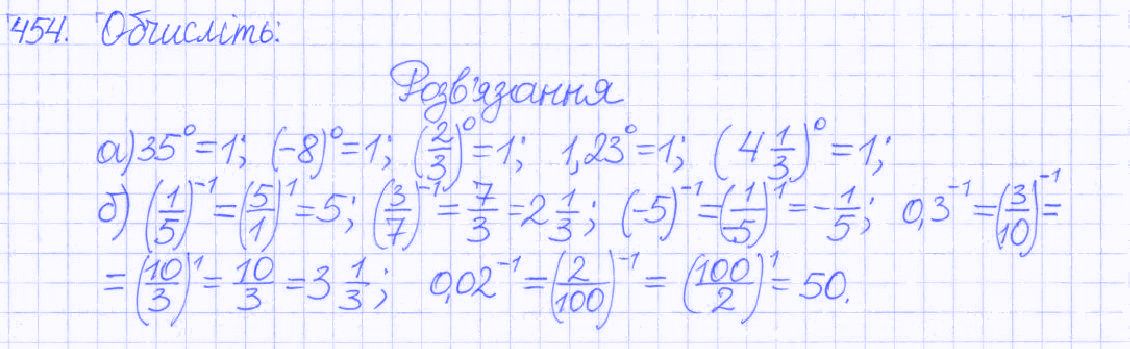 454. Обчисліть:
Розв'язання
а) 35⁰ = 1; (-8)⁰ = 1; (2/3)⁰ = 1; 1,23⁰ = 1; (4 1/3)⁰ = 1;
б) (1/5)⁻¹ = (5/1)¹ = 5; (3/7)⁻¹ = 7/3 = 2 1/3; (-5)⁻¹ = (1/-5)¹ = - 1/5; 0,3⁻¹ = (3/10)⁻¹ =
= (10/3)¹ = 10/3 = 3 1/3; 0,02⁻¹ = (2/100)⁻¹ = (100/2)¹ = 50.